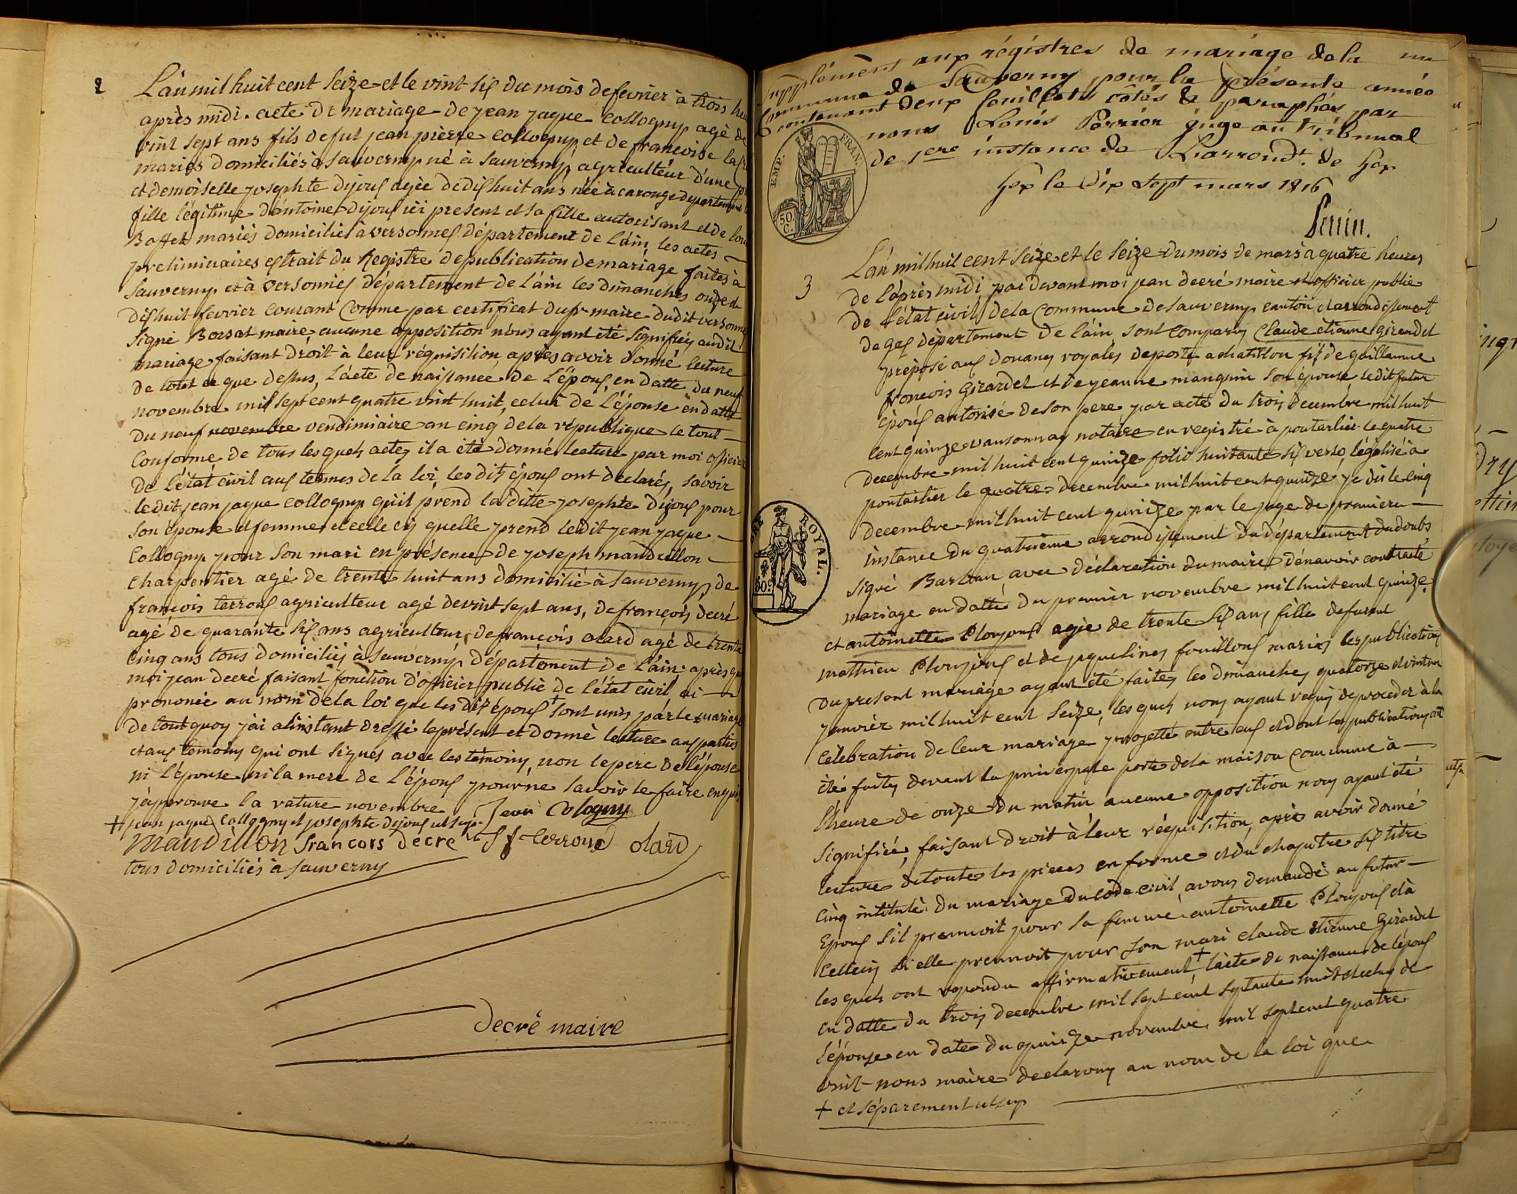 2
L'an mil huit cent seize et le vint six du mois de fevrier à trois
après midi. acte de mariage de jean jaque Collogny agé de
vint sept ans fils de fut jean pierre Collogny et de francoise
mariés domiciliés à Sauverny né à Sauverny agriculteur d'une
et demoiselle josephte Dijoux agée de dix huit ans née à carouge departement
fille légitime d'antoine Dijoux ici present et sa fille autorisant et de
Baffer mariés domiciliés à versonnex département de l'ain, les actes
preliminaires extrait du Registre de publication de mariage faites à
Sauverny et à versonnex département de l'ain les dimanches onze et
dix huit fevrier courant comme par certificat du sr maire dudit versonnex
signé Borsat maire aucune opposition nous ayant été signifiéz audit
mariage, faisant droit à leur réquisition, après avoir donné lecture
de tout ce que dessus, l'acte de naissance de l'époux, en datte du neuf
novembre mil sept cent quatre vint huit, celui de l'épouse en datte
du neuf novembre vendimiaire an cinq de la république le tout
Conforme de tous lesquels actes il a été donné lecture par moi officier
de l'état civil aux termes de la loi, les dit époux ont declarés, savoir
ledit jean jaque Collogny qu'il prend laditte josephte Dijoux pour
son épouse et femme, et celle ci quelle prend ledit jean jaque
Collogny pour son mari en présence de joseph mandrillon
charpentier agé de trente huit ans domicilié à Sauverny, de
francois terroux agriculteur agé de vint sept ans, de françois decré
agé de quarante six ans agriculteur, de francois olard agé de trente
cinq ans tous domiciliés à Sauverny département de l'ain. après quoi
moi jean decré faisant fonction d'officier public de l'état civil ai
prononcé au nom de la loi que les dit époux sont unis par le mariage
de tout quoy j'ai à l'instant dressé le présent et donné lecture aux parties
et aux temoins qui ont signés avec les témoins, non le pere de l'épouse
ni l'épouse ni la mere de l'époux pour ne savoir le faire enquis
j'approuve la rature novembre Jean Cologny
+ jean jaque Collogny et josephte Dijoux ut sup.
Mandrillon francois decré f terroux olard
tous domiciliés à Sauverny
decré maire
Supplément aux régistres de mariage de la
Commune de Sauverny pour la présente année
contenant deux feuillets côtés & paraphés par
nous Louis Perrier juge au tribunal
de 1ere instance de l'arrondt. de Gex
Gex le dix sept mars 1816
EMP. FRAN.
50 C.
3
L'an mil huit cent seize et le seize du mois de mars à quatre heures
de l'après midi par devant moi jean decré maire et officier public
de l'état civil de la commune de Sauverny canton et arrondissement
de Gex département de l'ain sont comparus Claude etienne Girardet
préposé aux douanes royales de poste à chatillon fils de guillaume
francois Girardet et de jeanne manquin son épouse, ledit futur
époux autorisé de son pere par acte du trois decembre mil huit
cent quinze notaire enregistré à pontarlier le quatre
decembre mil huit cent quinze folio huitante six verso, légalisé à
pontarlier le quatre decembre mil huit cent quinze, je dis le cinq
decembre mil huit cent quinze par le juge de premiere
instance du quatrieme arrondissement du département du doubs
signé Barban avec déclaration du maire de n'avoir contracté
mariage en datte du premier novembre mil huit cent quinze.
et antoinette Plonjoux agée de trente six ans, fille de furent
mathieu Plonjoux et de jaqueline fouilloux mariés les publications
du present mariage ayant été faites les dimanches quatorze et vint un
janvier mil huit cent seize, lesquels nous ayant requis de proceder à la
célébration de leur mariage projetté entre eux et dont les publications ont
été faites devant la principale porte de la maison commune à
l'heure de onze du matin aucune opposition nous ayant été
signifiée, faisant droit à leur réquisition, après avoir donné
lecture de toutes les pieces en forme et du chapitre six titre
cinq intitulé du mariage du code civil, avons demandé au futur
époux s'il prennoit pour sa femme antoinette Plonjoux et à
celleci si elle prennoit pour son mari claude etienne Girardet
lesquels ont repondu affirmativement + l'acte de naissance de l'époux
en datte du trois decembre mil sept cent septante
l'épouse en date du quinze novembre mil sept cent quatre
vint - nous maire declarons au nom de la loi que
+ et séparement ut sup
ROYAL.